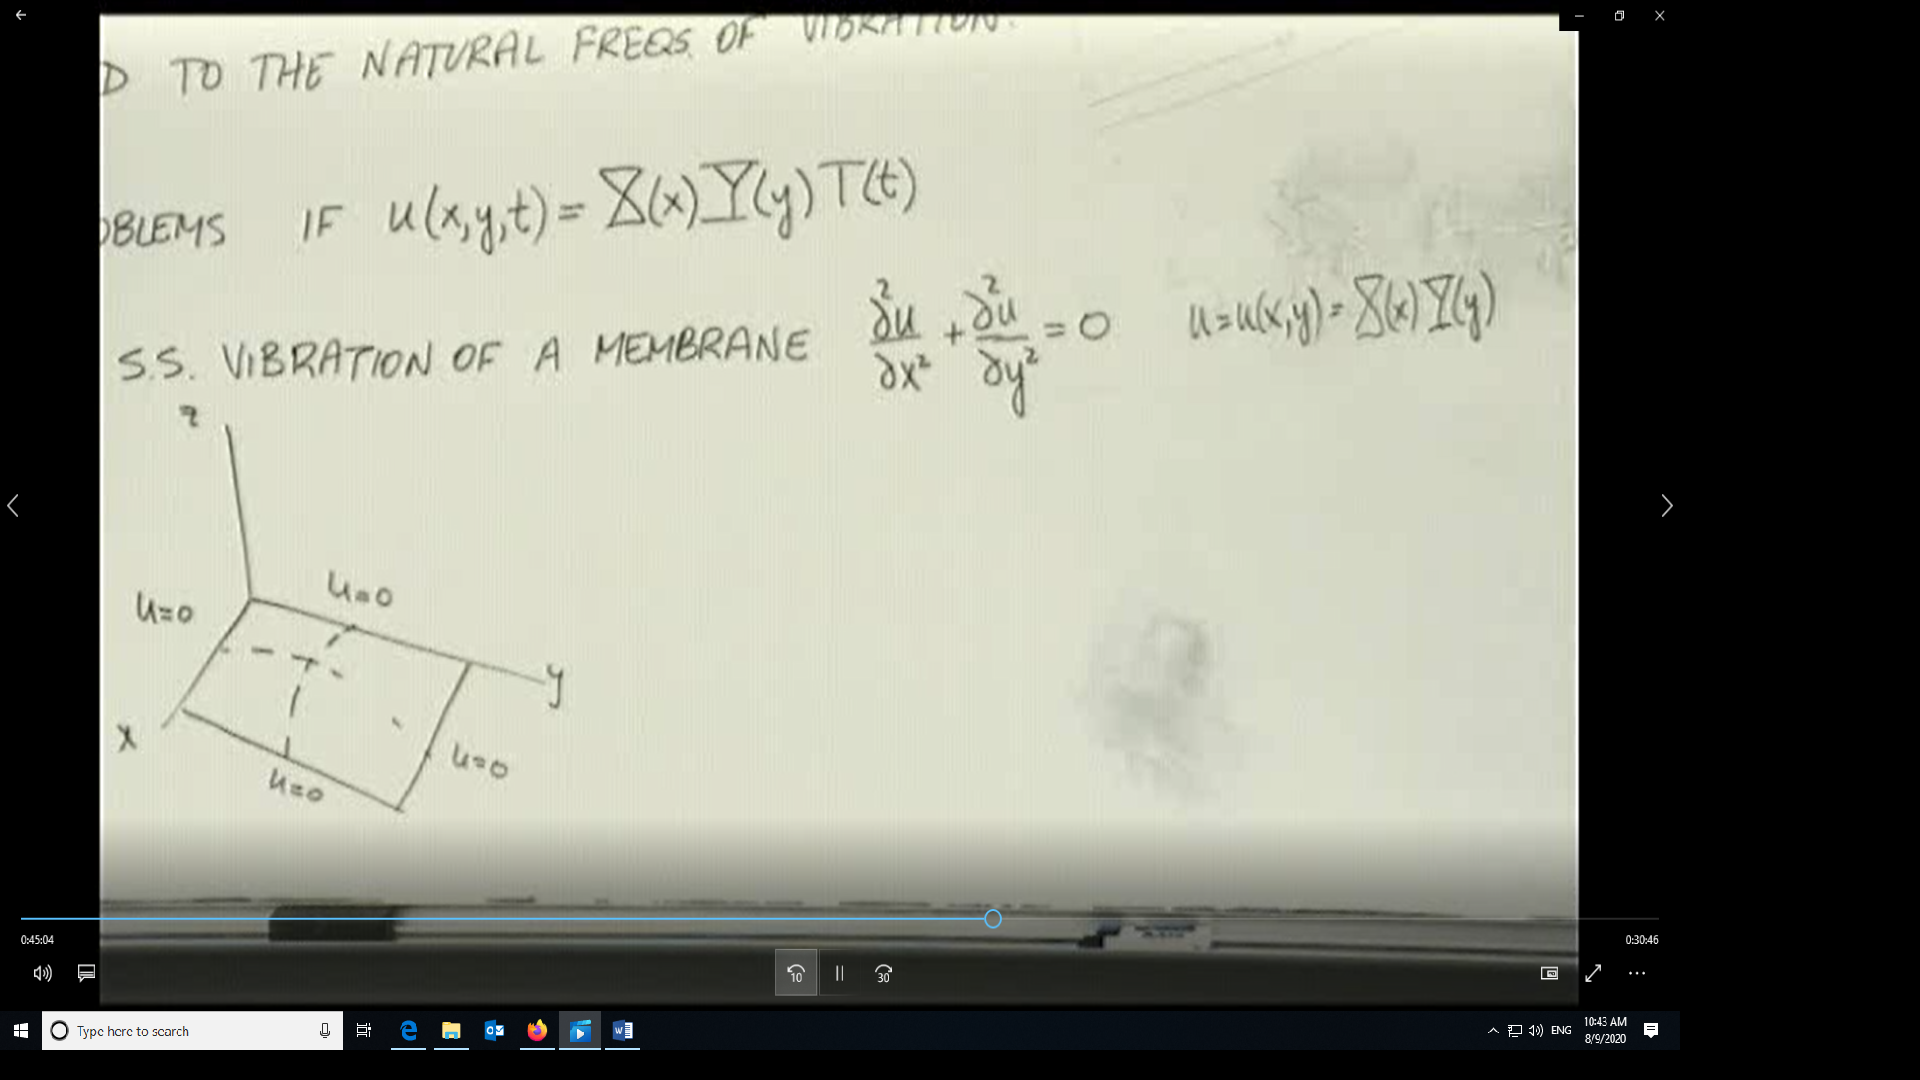 D TO THE NATURAL FREQS. OF VIBRATION.
OBLEMS IF u(x,y,t) = X(x)Y(y)T(t)
S.S. VIBRATION OF A MEMBRANE ∂²u/∂x² + ∂²u/∂y² = 0 u=u(x,y)= X(x)Y(y)
z
u=0
u=0
y
x
u=0
u=0
0:45:04
0:30:46
10
30
Type here to search
ENG
10:43 AM
8/9/2020